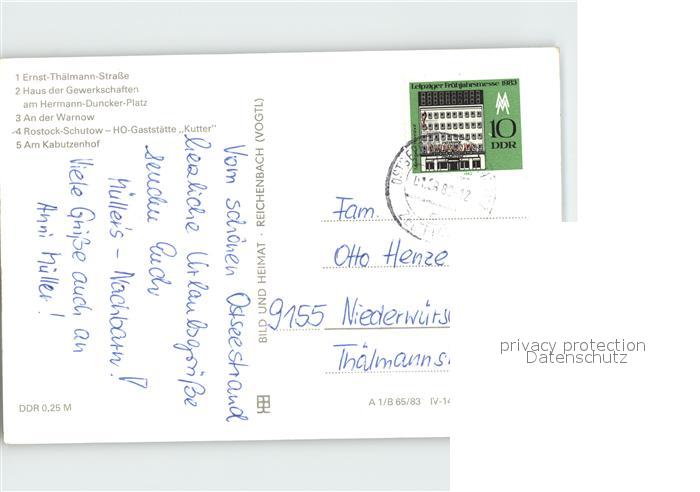 1 Ernst-Thälmann-Straße
2 Haus der Gewerkschaften
am Hermann-Duncker-Platz
3 An der Warnow
4 Rostock-Schutow – HO-Gaststätte „Kutter"
5 Am Kabutzenhof
Vom schönen Ostseestrand
herzliche Urlaubsgrüße
senden Euch
Müller's - Nachbarn!
Viele Grüße auch an
Anni Müller!
DDR 0,25 M
BILD UND HEIMAT · REICHENBACH (VOGTL)
A 1/B 65/83 IV-14
Leipziger Frühjahrsmesse 1983
10
DDR
Fam.
Otto Henze
9155 Niederwürs
Thälmanns
privacy protection
Datenschutz